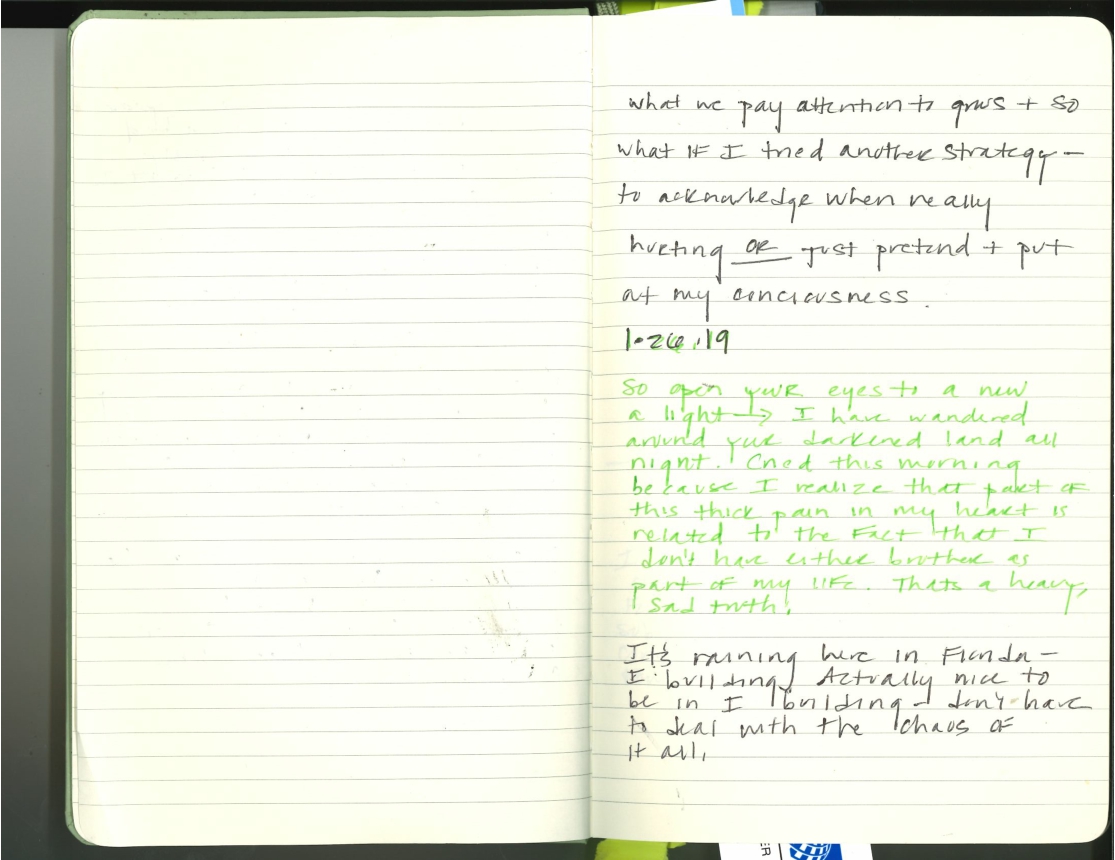 what we pay attention to grows + so
what IF I tried another strategy –
to acknowledge when really
hurting OR just pretend + put
at my conciousness.
1.26.19
So open your eyes to a new
a light → I have wandered
around your darkened land all
night. Cried this morning
because I realize that part of
this thick pain in my heart is
related to the Fact that I
don't have either brother as
part of my life. Thats a heavy,
sad truth.
It's raining here in Florida –
I building. Actually nice to
be in I building – don't have
to deal with the chaos of
it all.
ER